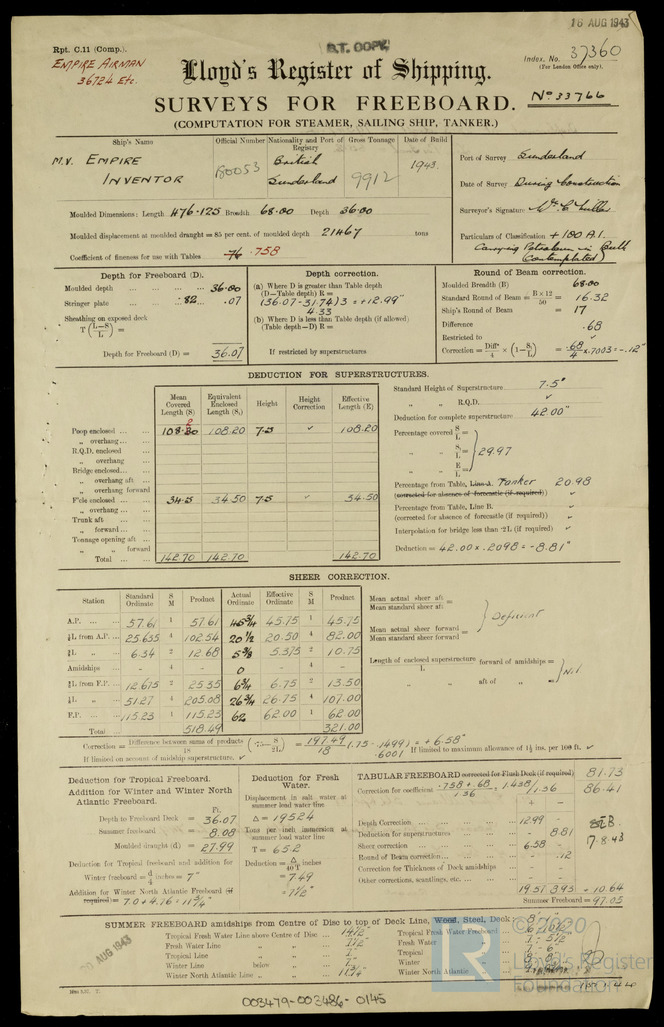 16 AUG 1943
Rpt. C.11 (Comp.).
B.T. COPY
EMPIRE AIRMAN
36724 Etc.
Index. No. 37360
(For London Office only).
Lloyd's Register of Shipping.
SURVEYS FOR FREEBOARD.
No 33766
(COMPUTATION FOR STEAMER, SAILING SHIP, TANKER.)
Ship's Name Official Number Nationality and Port of Registry Gross Tonnage Date of Build
M.V. EMPIRE INVENTOR 180053 British Sunderland 9912 1943
Port of Survey Sunderland
Date of Survey During Construction
Surveyor's Signature
Particulars of Classification +100 A.1.
Carrying Petroleum in Bulk
(Contemplated)
Moulded Dimensions: Length 476.125 Breadth 68.00 Depth 36.00
Moulded displacement at moulded draught = 85 per cent. of moulded depth 21467 tons
Coefficient of fineness for use with Tables .76 .758
Depth for Freeboard (D).
Moulded depth ... 36.00
Stringer plate ... .82 .07
Sheathing on exposed deck
T (L-S/L) =
Depth for Freeboard (D) = 36.07
Depth correction.
(a) Where D is greater than Table depth
(D—Table depth) R =
(36.07-31.74) 3 = +12.99"
4.33
(b) Where D is less than Table depth (if allowed)
(Table depth—D) R =
If restricted by superstructures
Round of Beam correction.
Moulded Breadth (B) 68.00
Standard Round of Beam = B×12/50 = 16.32
Ship's Round of Beam = 17
Difference .68
Restricted to ✓
Correction = Diff/4 × (1-S₁/L) = .68/4 x .7003 = -.12"
DEDUCTION FOR SUPERSTRUCTURES.
Mean Covered Length (S) Equivalent Enclosed Length (S₁) Height Height Correction Effective Length (E)
Poop enclosed ... 108.20 108.20 7.5 ✓ 108.20
„ overhang ...
R.Q.D. enclosed
„ overhang
Bridge enclosed...
„ overhang aft ...
„ overhang forward
F'cle enclosed ... 34.5 34.50 7.5 ✓ 34.50
„ overhang ...
Trunk aft ...
„ forward...
Tonnage opening aft ...
„ „ forward
Total ... 142.70 142.70 142.70
Standard Height of Superstructure 7.5'
„ „ R.Q.D. ✓
Deduction for complete superstructure 42.00"
Percentage covered S/L =
„ „ S₁/L = 29.97
„ „ E/L =
Percentage from Table, Line A. Tanker 20.98
(corrected for absence of forecastle (if required)) ✓
Percentage from Table, Line B. ✓
(corrected for absence of forecastle (if required)) ✓
Interpolation for bridge less than ·2L (if required) ✓
Deduction = 42.00 x .2098 = -8.81"
SHEER CORRECTION.
Station Standard Ordinate S M Product Actual Ordinate Effective Ordinate S M Product
A.P. ... 57.61 1 57.61 45 3/4 45.75 1 45.75
⅙L from A.P. ... 25.635 4 102.54 20 1/2 20.50 4 82.00
⅓L „ ... 6.34 2 12.68 5 3/8 5.375 2 10.75
Amidships ... - 4 - 0 4
⅓L from F.P. ... 12.675 2 25.35 6 3/4 6.75 2 13.50
⅙L „ ... 51.27 4 205.08 26 3/4 26.75 4 107.00
F.P. ... 115.23 1 115.23 62 62.00 1 62.00
Total ... 518.49 321.00
Mean actual sheer aft = Mean standard sheer aft
Mean actual sheer forward = Mean standard sheer forward
Deficient
Length of enclosed superstructure forward of amidships =
L
„ „ aft of „ =
Nil.
Correction = Difference between sums of products/18 (·75—S/2L) = 197.49/18 (.75-.1499) = +6.58"
.6001
If limited on account of midship superstructure. ✓
If limited to maximum allowance of 1½ ins. per 100 ft. ✓
Deduction for Tropical Freeboard.
Addition for Winter and Winter North Atlantic Freeboard.
Ft.
Depth to Freeboard Deck = 36.07
Summer freeboard = 8.08
Moulded draught (d) = 27.99
Deduction for Tropical freeboard and addition for
Winter freeboard = d/4 inches = 7"
Addition for Winter North Atlantic Freeboard (if required) = 7.0 + 4.76 = 11 3/4"
Deduction for Fresh Water.
Displacement in salt water at summer load water line
Δ = 19524
Tons per inch immersion at summer load water line
T = 65.2
Deduction = Δ/40T inches
= 7.49
= 7½"
TABULAR FREEBOARD corrected for Flush Deck (if required) 81.73
Correction for coefficient .758+.68/1.36 = 1.438/1.36 86.41
+ -
Depth Correction ... 12.99
Deduction for superstructures ... 8.81
Sheer correction ... 6.58
Round of Beam correction... .12
Correction for Thickness of Deck amidships ...
Other corrections, scantlings, etc. ...
19.57 8.93 = 10.64
Summer Freeboard = 97.05
17.8.43
SUMMER FREEBOARD amidships from Centre of Disc to top of Deck Line, Wood, Steel, Deck:—
Tropical Fresh Water Line above Centre of Disc ... 14½"
Fresh Water Line „ „ ... 7½"
Tropical Line „ „ ... 7"
Winter Line below „ ... 7"
Winter North Atlantic Line „ „ ... 11¾"
Tropical Fresh Water Freeboard
Fresh Water „
Tropical „
Winter „
Winter North Atlantic „
AUG 1943
© 2020
LR
Lloyd's Register
Foundation
003479-003486-0145